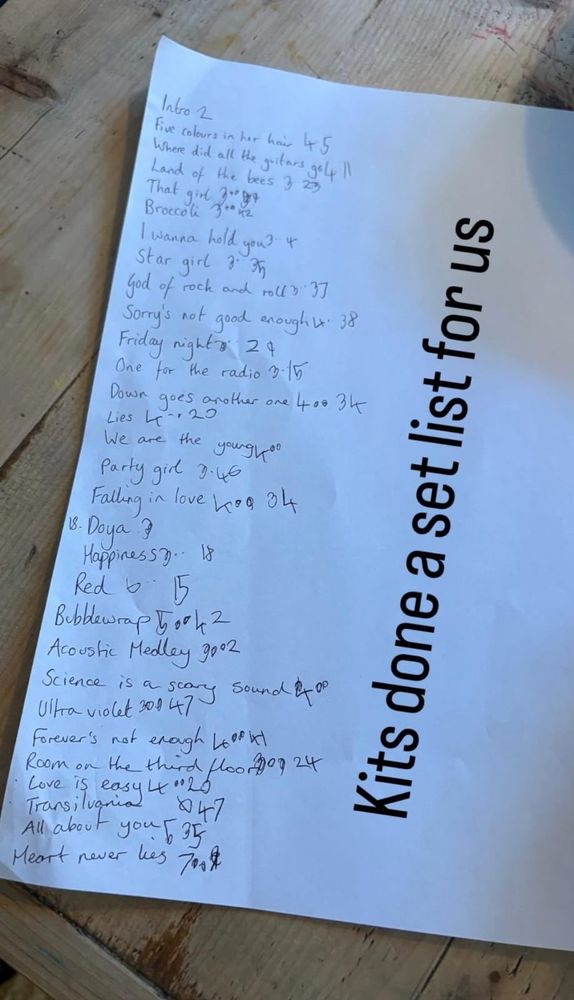 Intro 2
Five colours in her hair 4 5
Where did all the guitars go 4 11
Land of the bees 3 23
That girl 3
Broccoli 3 42
I wanna hold you 3 4
Star girl 3 35
God of rock and roll 3 37
Sorry's not good enough 4 38
Friday night 3 29
One for the radio 3 15
Down goes another one 4 34
Lies 4 20
We are the young 4
Party girl 3 46
Falling in love 4 34
18. Doya 3
Happiness 3 18
Red 6 15
Bubblewrap 5 42
Acoustic Medley 9 02
Science is a scary sound 4
Ultra violet 3 47
Forever's not enough 4 41
Room on the third floor 3 24
Love is easy 4 20
Transilvania 47
All about you 5 35
Heart never lies 7
Kits done a set list for us